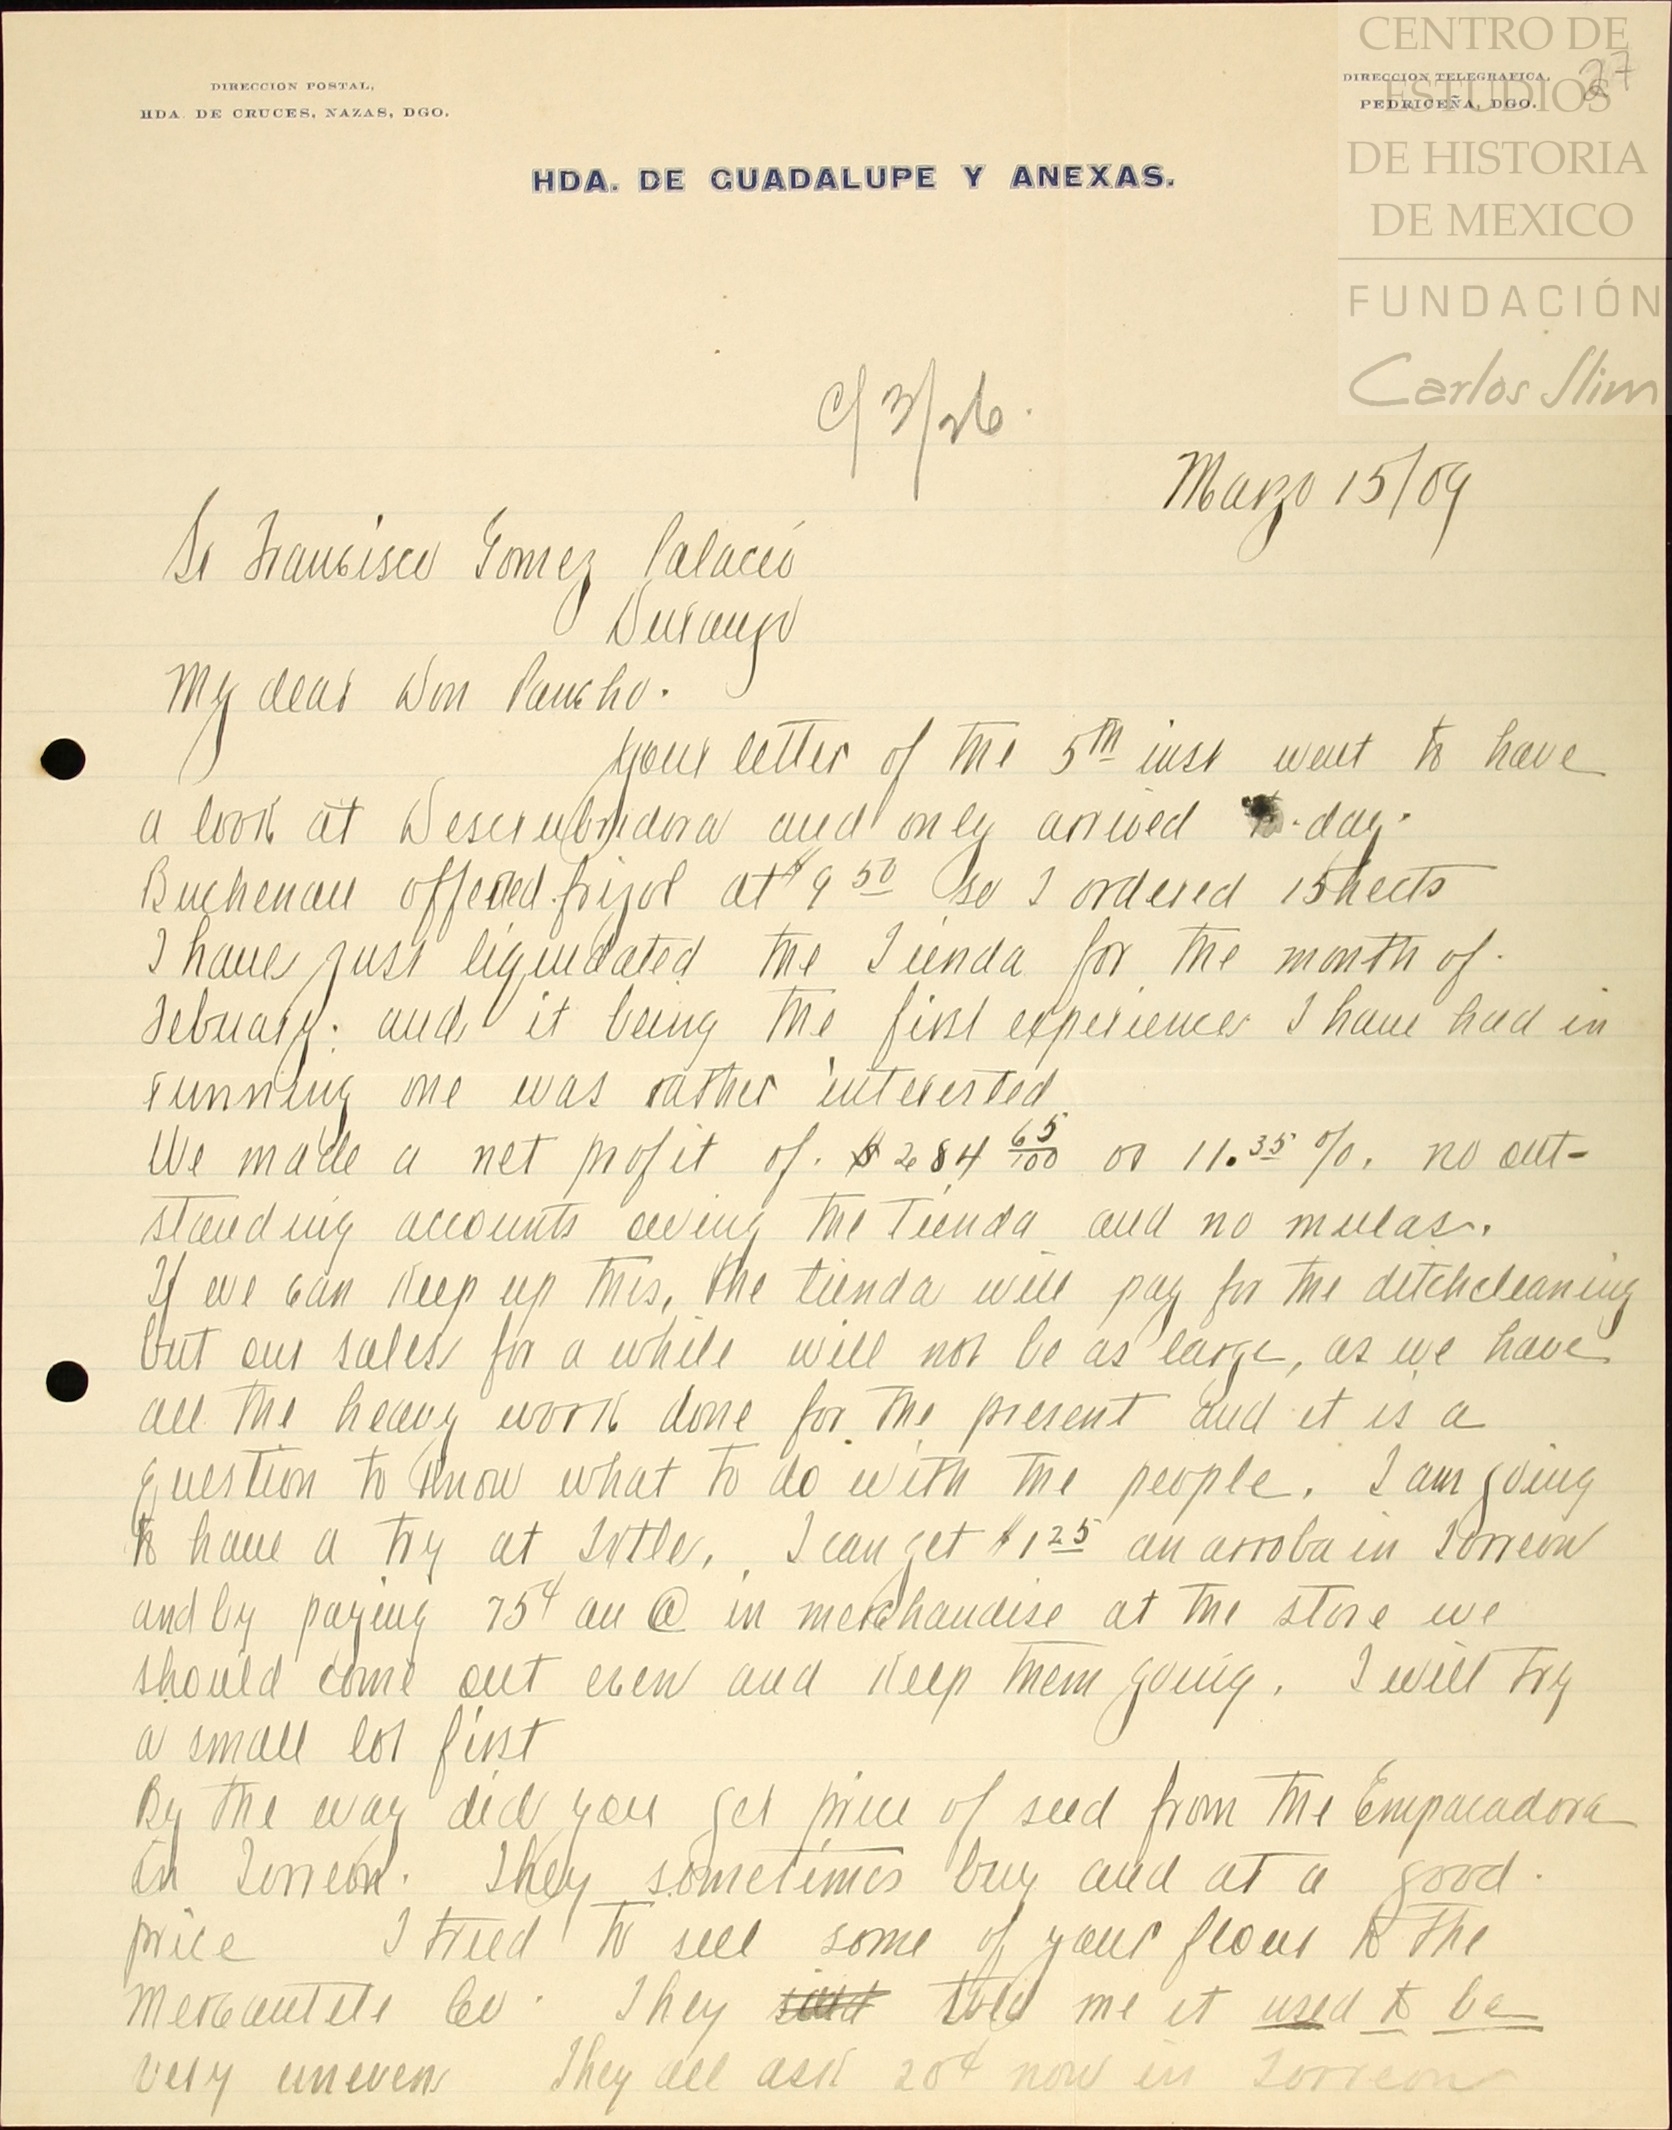 CENTRO DE
ESTUDIOS
DE HISTORIA
DE MEXICO
FUNDACIÓN
Carlos Slim
27
DIRECCION POSTAL,
HDA. DE CRUCES, NAZAS, DGO.
DIRECCION TELEGRAFICA,
PEDRICEÑA, DGO.
HDA. DE GUADALUPE Y ANEXAS.
C/ 3/26.
Marzo 15/09
Sr Francisco Gomez Palacio
Durango
My dear Don Pancho.
Your letter of the 5th inst went to have
a look at Descrubridora and only arrived to-day.
Buchenau offered frijol at $9 50 so I ordered 15 hects
I have just liquidated the Tienda for the month of.
Febuary. and it being the first experience I have had in
running one was rather interested
We made a net profit of. $284 65/100 or 11.35 %. no out-
standing accounts owing the Tienda and no mulas.
If we can keep up this, the tienda will pay for the ditchcleaning
but our sales for a while will not be as large, as we have
all the heavy work done for the present and it is a
question to know what to do with the people. I am going
to have a try at Ixtle. I can get $1 25 an arroba in Torreon
and by paying 75¢ an @ in merchandise at the store we
should come out even and keep them going. I will try
a small lot first
By the way did you get price of seed from the Empacadora
in Torreon. They sometimes buy and at a good.
price I tried to sell some of your flour to the
Mercantile Co. They said told me it used to be
very uneven They all ask 20¢ now in Torreon